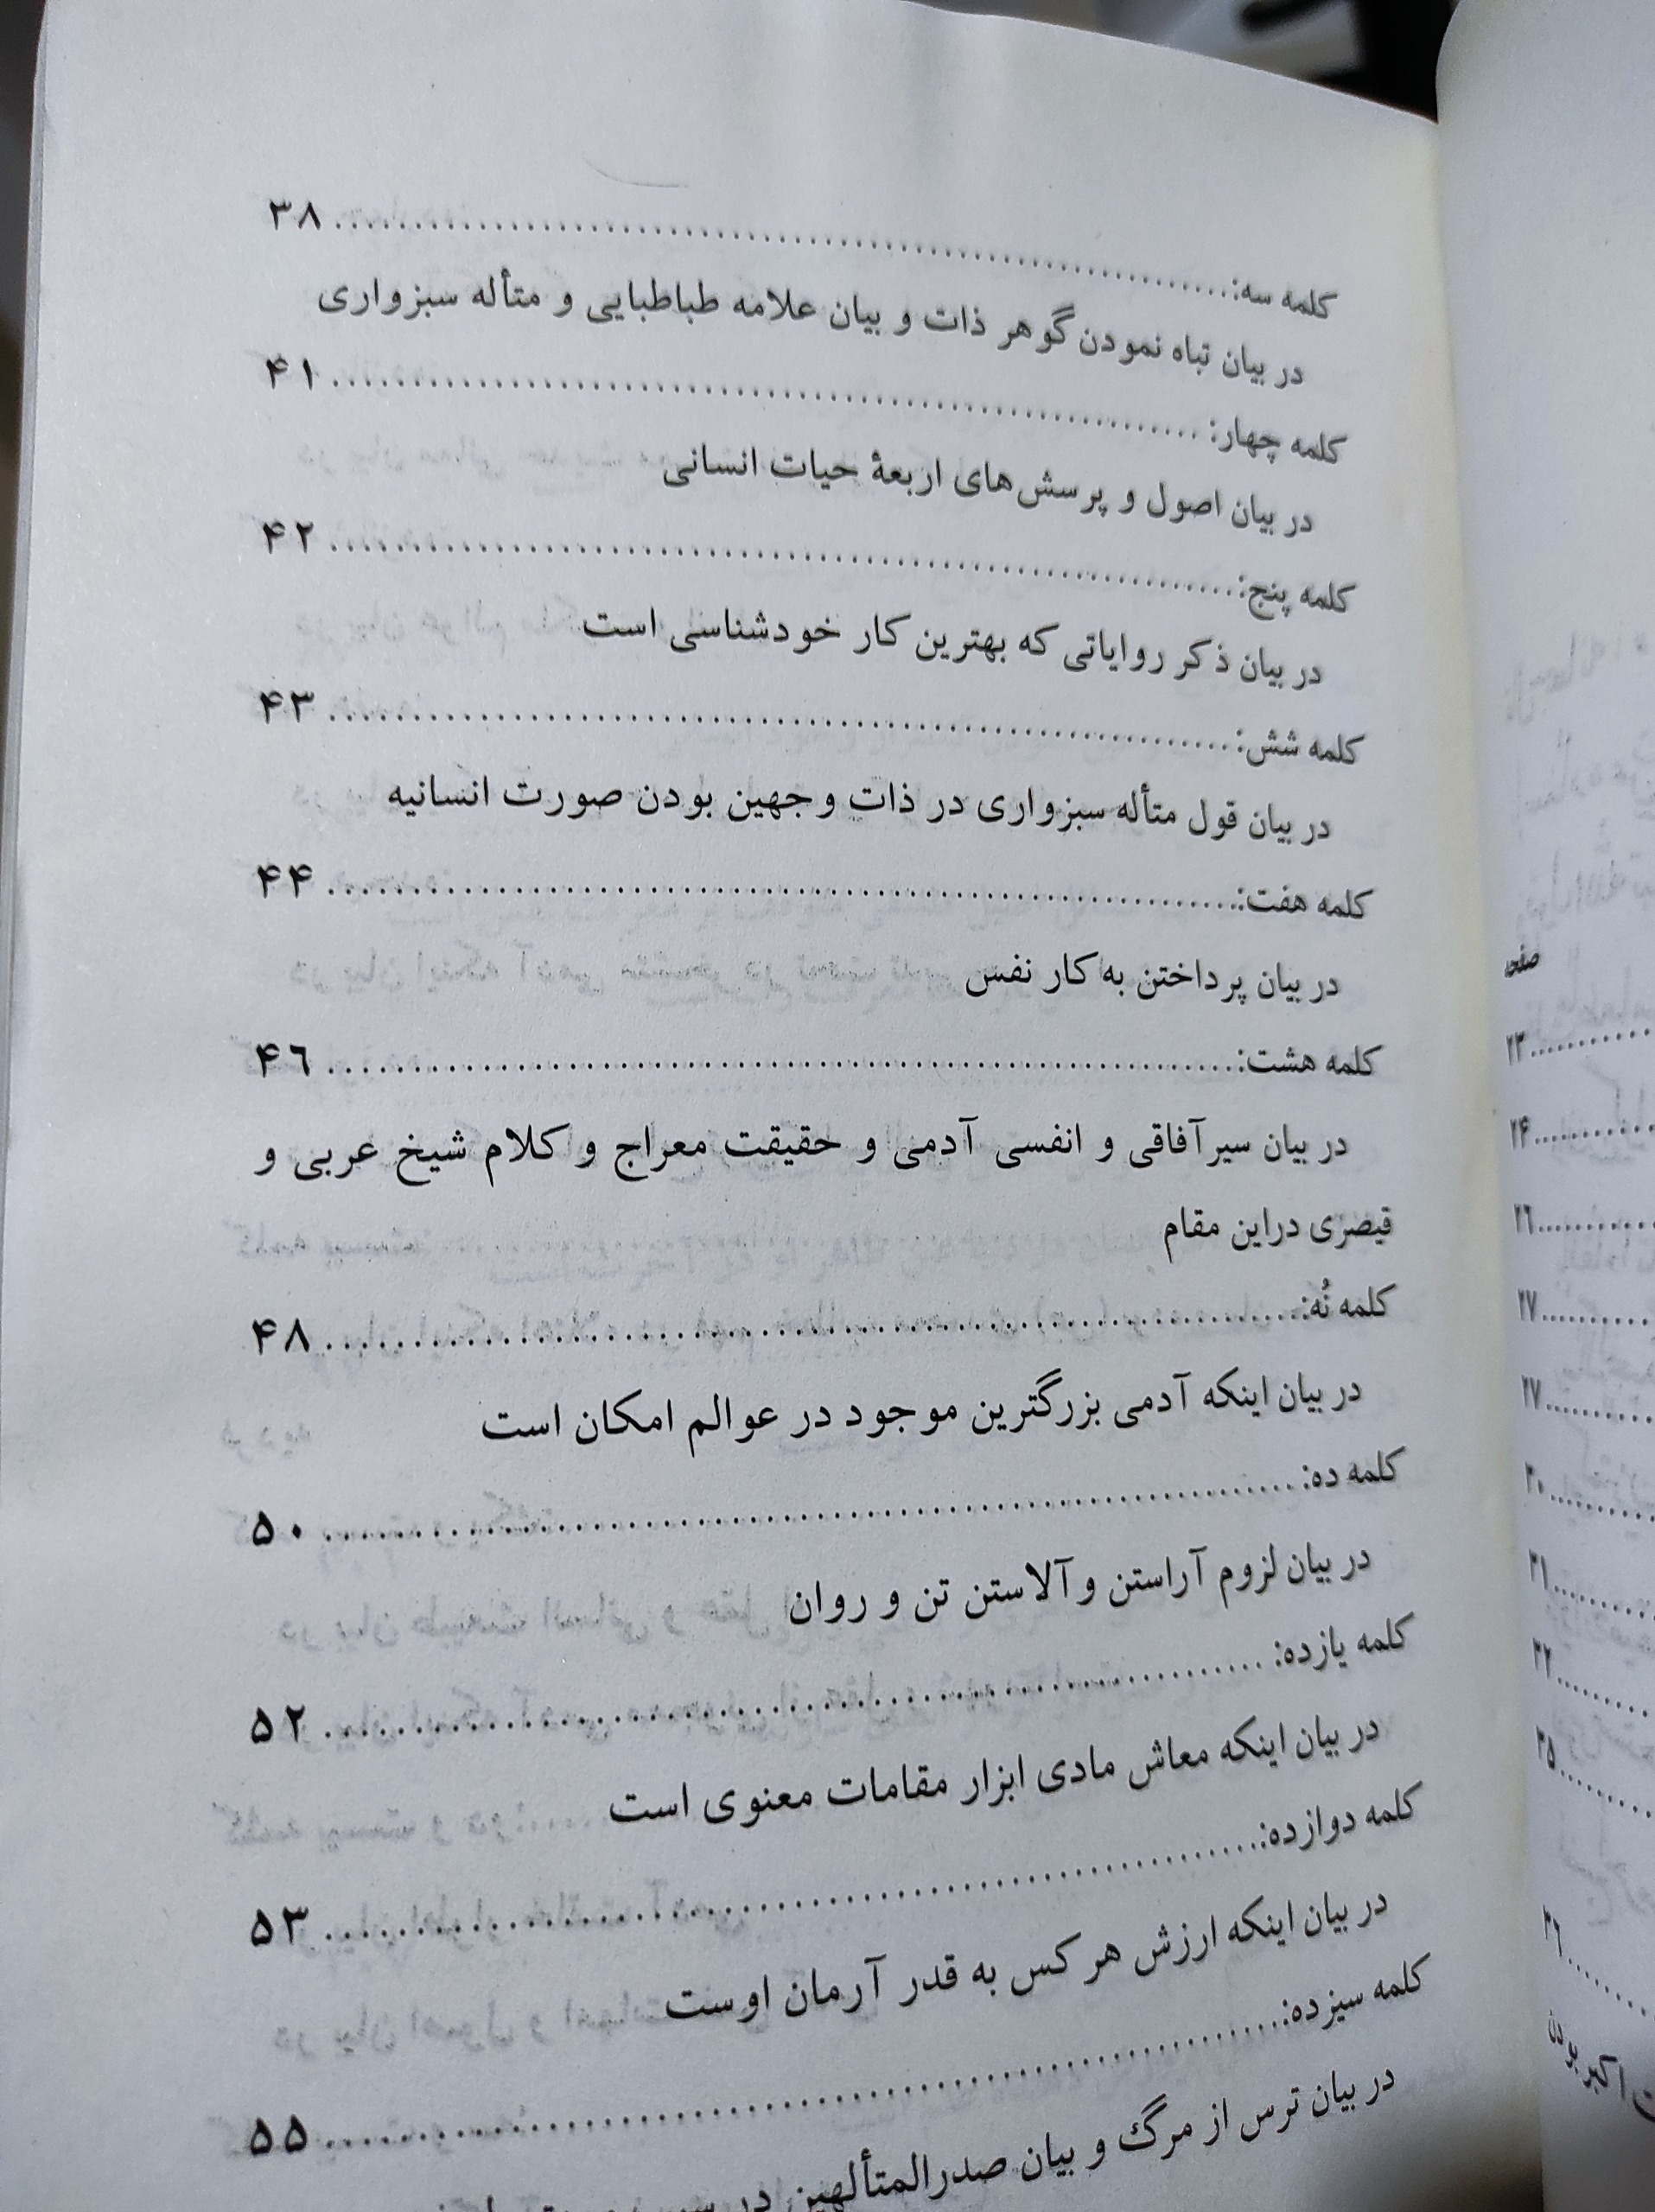 کلمه سه: ........ ۳۸
در بیان تباه نمودن گوهر ذات و بیان علامه طباطبایی و متأله سبزواری
کلمه چهار: ........ ۴۱
در بیان اصول و پرسش‌های اربعهٔ حیات انسانی
کلمه پنج: ........ ۴۲
در بیان ذکر روایاتی که بهترین کار خودشناسی است
کلمه شش: ........ ۴۳
در بیان قول متأله سبزواری در ذات وجهین بودن صورت انسانیه
کلمه هفت: ........ ۴۴
در بیان پرداختن به کار نفس
کلمه هشت: ........ ۴۶
در بیان سیر آفاقی و انفسی آدمی و حقیقت معراج و کلام شیخ عربی و
قیصری دراین مقام
کلمه نُه: ........ ۴۸
در بیان اینکه آدمی بزرگترین موجود در عوالم امکان است
کلمه ده: ........ ۵۰
در بیان لزوم آراستن و آلاستن تن و روان
کلمه یازده: ........ ۵۲
در بیان اینکه معاش مادی ابزار مقامات معنوی است
کلمه دوازده: ........ ۵۳
در بیان اینکه ارزش هر کس به قدر آرمان اوست
کلمه سیزده: ........ ۵۵
در بیان ترس از مرگ و بیان صدرالمتألهین در
صفحه
۲۳
۲۴
۲۶
۲۷
۲۷
۳۰
۳۱
۳۲
۳۵
۳۶
اکبر بودن